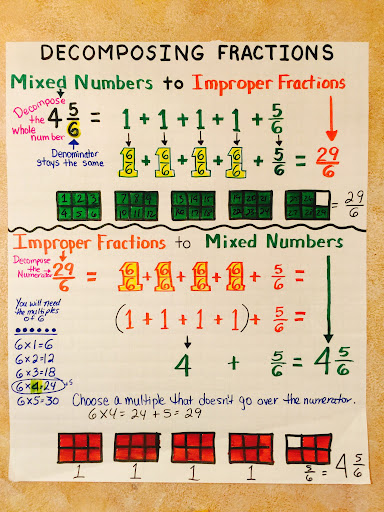 DECOMPOSING FRACTIONS
Mixed Numbers to Improper Fractions
Decompose the whole number
4 5/6 = 1 + 1 + 1 + 1 + 5/6
Denominator stays the same
6/6 + 6/6 + 6/6 + 6/6 + 5/6 = 29/6
1 2 3 7 8 9
4 5 6 10 11 12
= 29/6
Improper Fractions to Mixed Numbers
Decompose the Numerator
29/6 = 6/6 + 6/6 + 6/6 + 6/6 + 5/6 =
You will need the multiples of 6
(1 + 1 + 1 + 1) + 5/6 =
6x1=6
6x2=12
6x3=18
6x4=24 +5
6x5=30
4 + 5/6 = 4 5/6
Choose a multiple that doesn't go over the numerator.
6x4=24+5=29
1 1 1 1 5/6 = 4 5/6